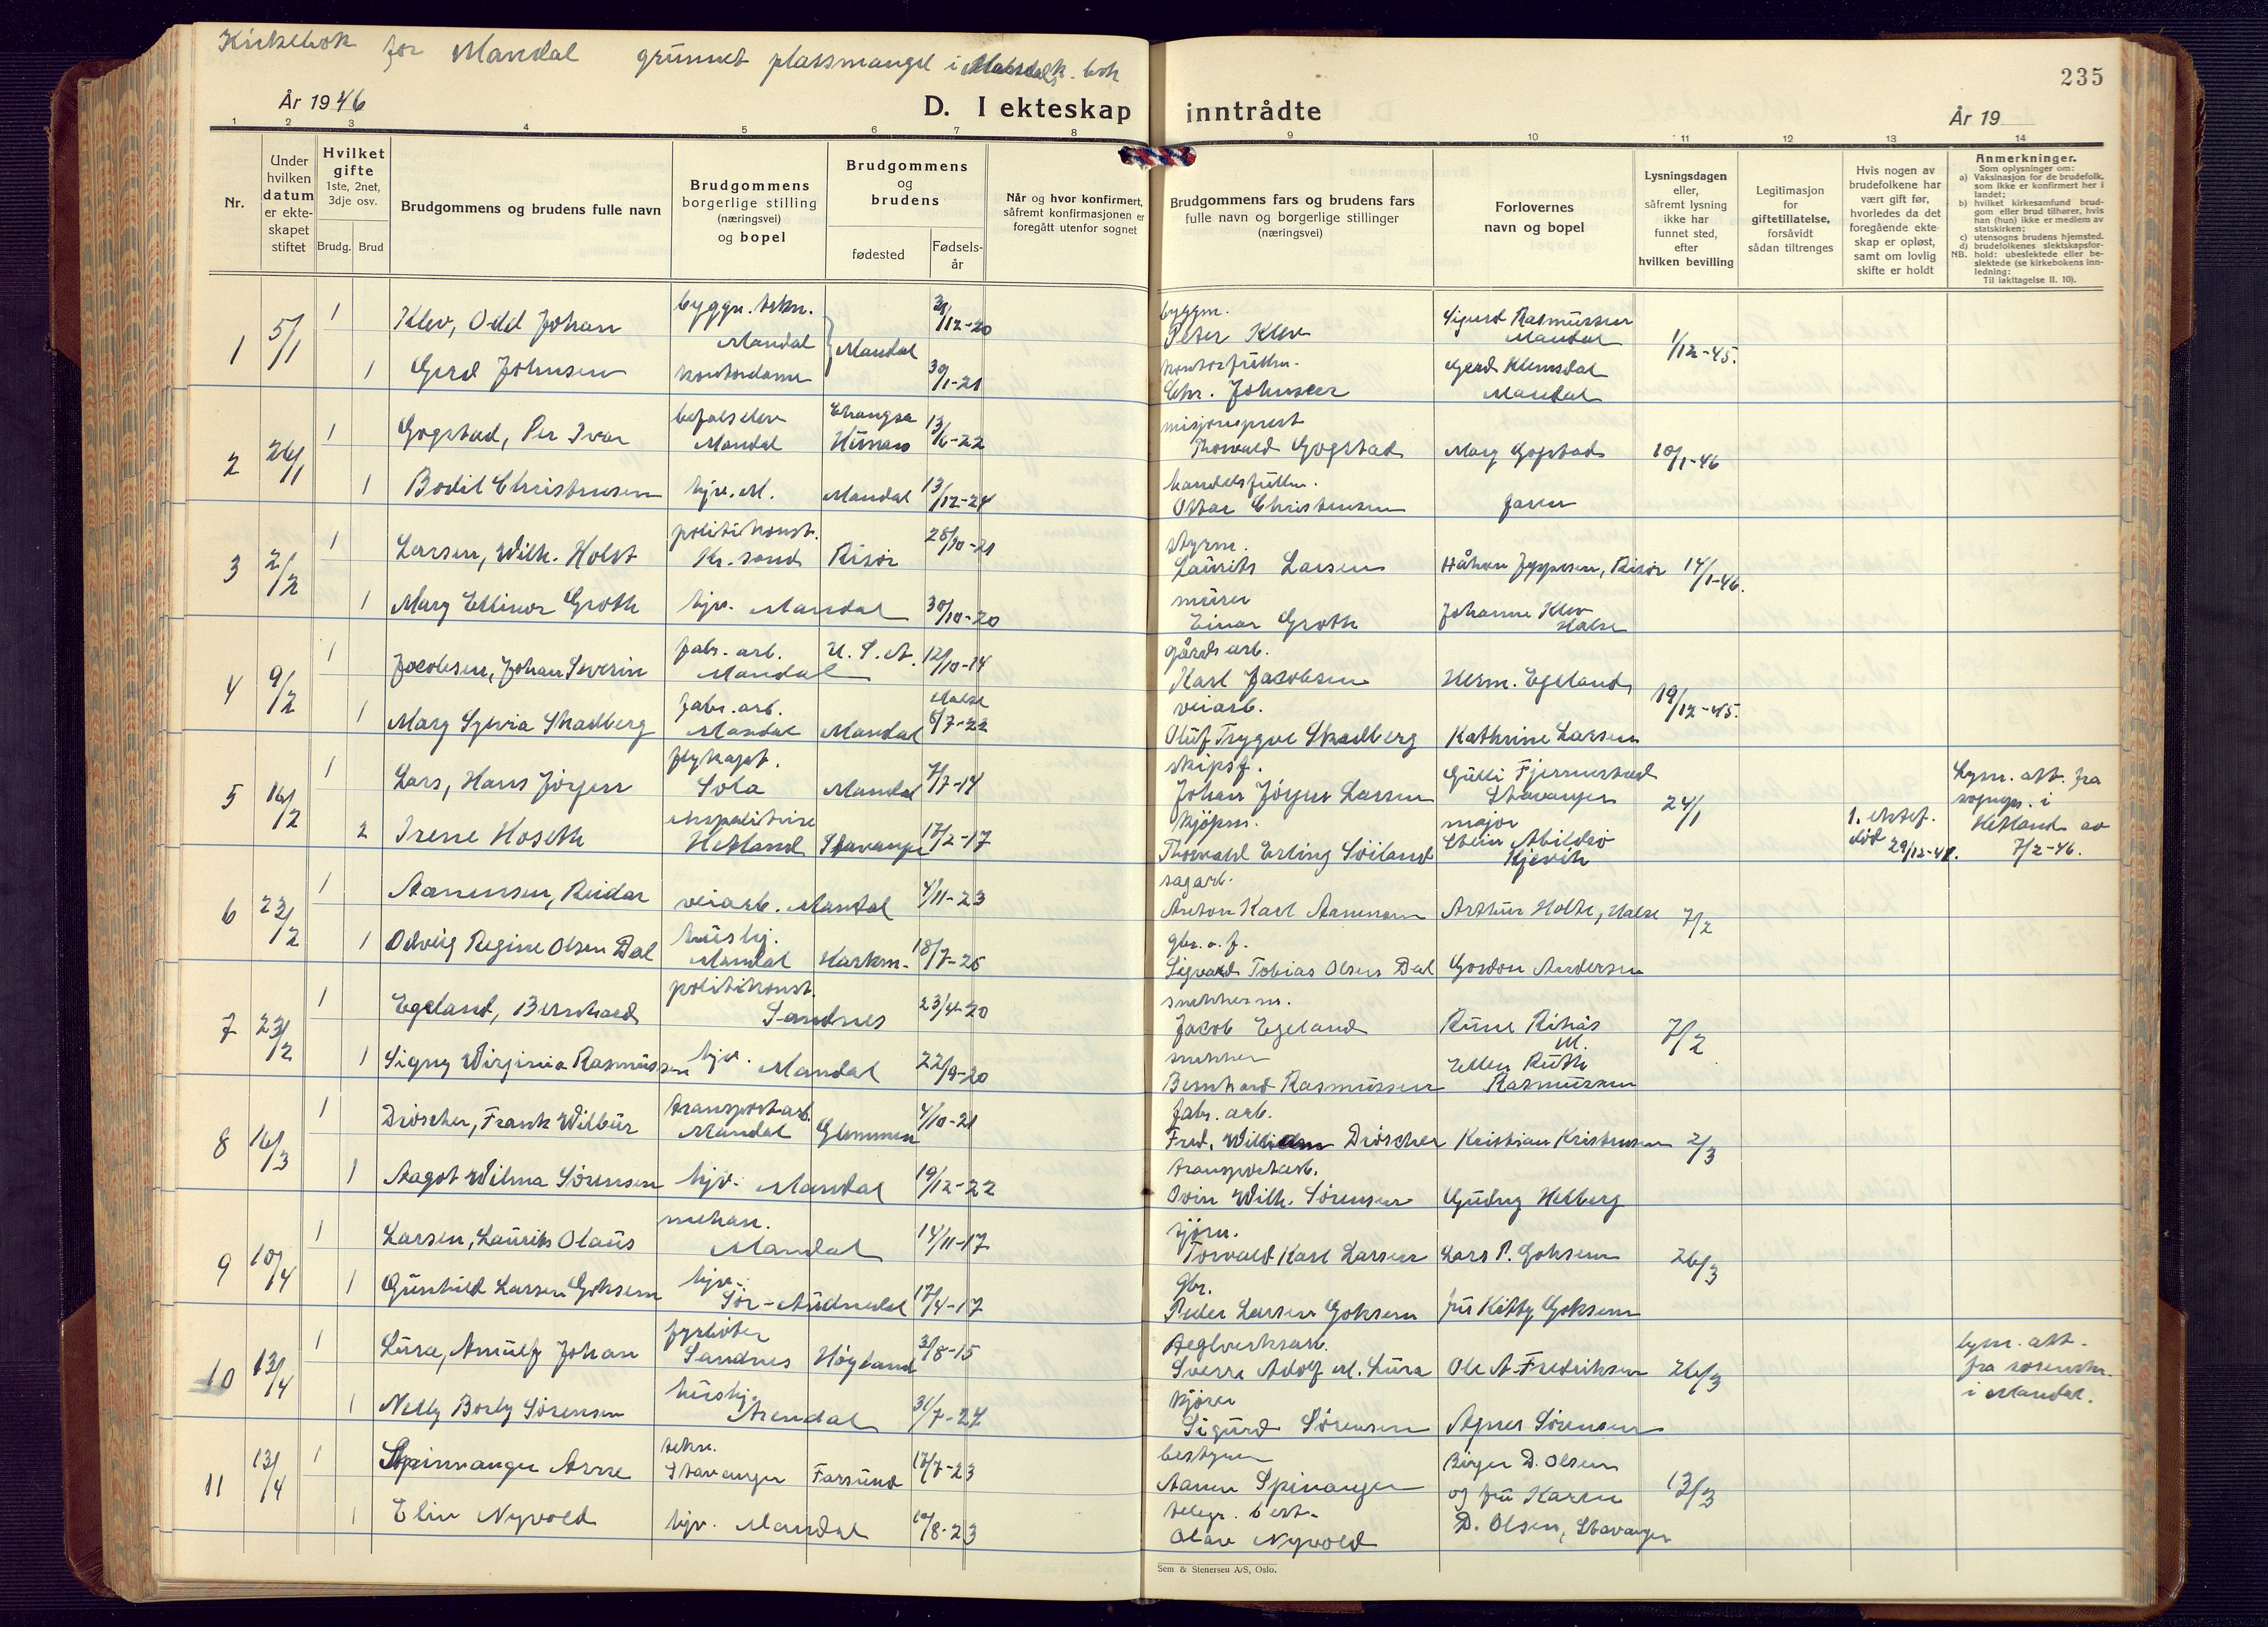 Kirkebok for Mandal grunnet plassmangel i Mandals k. bok
235
År 1946
D. I ekteskap inntrådte
År 19
1 2 3 4 5 6 7 8 9 10 11 12 13 14
Nr.
Under hvilken datum er ekteskapet stiftet
Hvilket gifte 1ste, 2net, 3dje osv.
Brudg. Brud
Brudgommens og brudens fulle navn
Brudgommens borgerlige stilling (næringsvei) og bopel
Brudgommens og brudens
fødested
Fødsels-år
Når og hvor konfirmert, såfremt konfirmasjonen er foregått utenfor sognet
Brudgommens fars og brudens fars fulle navn og borgerlige stillinger (næringsvei)
Forlovernes navn og bopel
Lysningsdagen eller, såfremt lysning ikke har funnet sted, efter hvilken bevilling
Legitimasjon for giftetillatelse, forsåvidt sådan tiltrenges
Hvis nogen av brudefolkene har vært gift før, hvorledes da det foregående ekteskap er opløst, samt om lovlig skifte er holdt
Anmerkninger.
Som oplysninger om:
a) Vaksinasjon for de brudefolk, som ikke er konfirmert her i landet;
b) hvilket kirkesamfund brudgom eller brud tilhører, hvis han (hun) ikke er medlem av statskirken;
c) utensogns brudens hjemsted.
d) brudefolkenes slektskapsforhold: ubeslektede eller beslektede (se kirkebokens innledning:
NB.
Til iakttagelse II. 10).
1 5/1 1 Klev, Odd Johan byggn. tekn. Mandal Mandal 12-20 byggm. Peter Klev Sigurd Rasmussen Mandal 1/12-45.
1 Gerd Johnsen kontordame 30/1-21 kontorfullm. Chr. Johnsen Gerd Klemsdal Mandal
2 26/1 1 Gogstad, Per Ivar befalselev Mandal Changsa Hunan 13/6-22 misjonsprest Thorvald Gogstad Mary Gogstad 10/1-46
1 Bodil Christensen hjv. M. Mandal 13/12-24 handelsfullm. Ottar Christensen faren
3 2/2 1 Larsen, Wilh. Holst politikonst. Kr.sand Risør 28/10-21 styrm. Laurits Larsen Håkon Jeppesen, Risør 14/1-46.
1 Mary Ellinor Groth hjv. Mandal 30/10-20 murer Einar Groth Johanne Klev Halse
4 9/2 1 Jacobsen, Johan Severin fabr. arb. Mandal U.S.A. 12/10-14 gårdsarb. Karl Jacobsen Herm. Egeland 19/12-45.
1 Mary Sylvia Skadberg fabr. arb. Mandal Mandal Halse 6/7-22 veiarb. Oluf Trygve Skadberg Kathrine Larsen
5 16/2 1 Lars, Hans Jørgen flykapt. Sola Mandal 7/7-14 skipsf. Johan Jørgen Larsen Gulli Fjermestad Stavanger 24/1 Lysn. att. fra sognepr. i Hetland av 7/2-46.
2 Irene Hoseth Hetland Stavanger 17/2-17 kjøpm. Thorvald Erling Søiland major Stein Abildsø Kjevik 1. ektef. død 29/12-41.
6 23/2 1 Aanensen, Reidar veiarb. Mandal 4/11-23 sagarb. Anton Karl Aanensen Arthur Holte, Halse 7/2
1 Odveig Regine Olsen Dal hushj. Mandal Harkm. 18/7-25 gbr. o. f. Sigvard Tobias Olsen Dal Gordon Andersen
7 23/2 1 Egeland, Bernhard politikonst. Sandnes 23/4-20 snekkerm. Jacob Egeland Rune Rihås M. 7/2
1 Signy Virginia Rasmussen hjv. Mandal 22/9-20 snekker Bernhard Rasmussen Ellen Ruth Rasmussen
8 16/3 1 Drøscher, Frank Wilbur transportarb. Mandal Glemmen 4/10-21 fabr. arb. Fred. William Drøscher Kristian Kristensen 2/3
1 Aagot Wilma Sørensen hjv. Mandal 19/12-22 transportarb. Wilh. Sørensen Gudny Helberg
9 10/4 1 Larsen, Laurits Olaus mekan. Mandal 14/11-17 sjøm. Torvald Karl Larsen Lars P. Goksem 26/3
1 Gunhild Larsen Goksem hjv. Sør-Audnedal 17/4-17 gbr. Peder Larsen Goksem fru Kitty Goksem
10 13/4 1 Lura, Arnulf Johan fyrbøter Sandnes Høyland 3/8-15 teglverksarb. Sverre Adolf M. Lura Ole A. Fredriksen 26/3 lysn. att. fra sorenskr. i Mandal.
1 Nelly Borly Sørensen hushj. Arendal 31/7-24 kjører Sigurd Sørensen Agnes Sørensen
11 13/4 1 Spinnanger Arne tekn. Stavanger Farsund 17/7-23 bestyrer Aanen Spinnanger Birger D. Olsen og fru Karen D. Olsen, Stavanger 13/3
1 Elin Nyvold hjv. Mandal 10/8-23 telegr. best. Olav Nyvold
Sem & Stenersen A/S, Oslo.